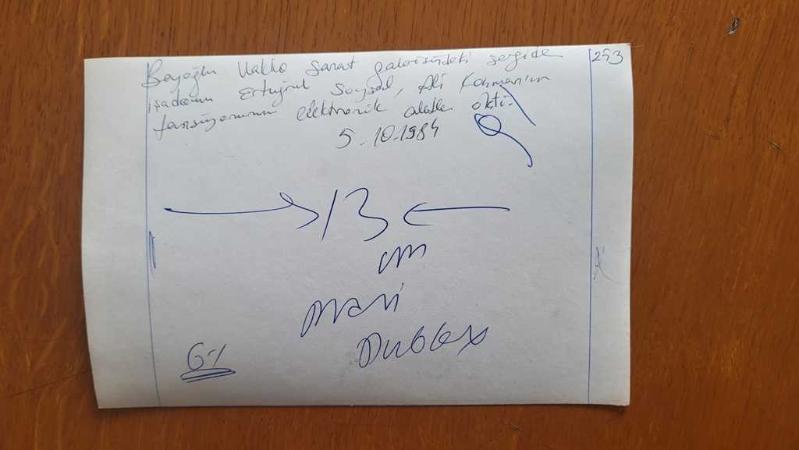 Beyoğlu Vakko Sanat galerisindeki sergide
işadamı Ertuğrul Soysal, Ali Koçman'ın
tansiyonunu elektronik aletle ölçtü.
5.10.1984
253
13
cm
Mavi
Dublex